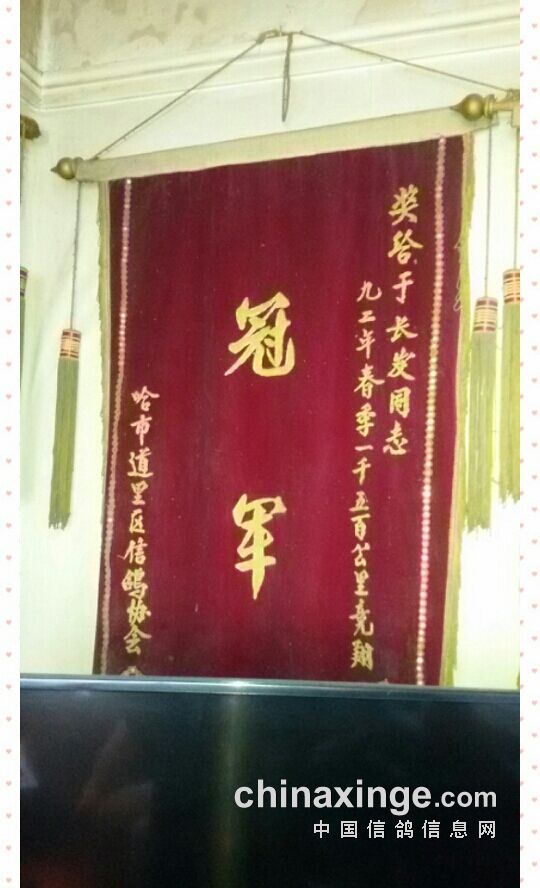 奖给于长发同志
九二年春季一千五百公里竞翔
冠军
哈市道里区信鸽协会
chinaxinge.com
中国信鸽信息网